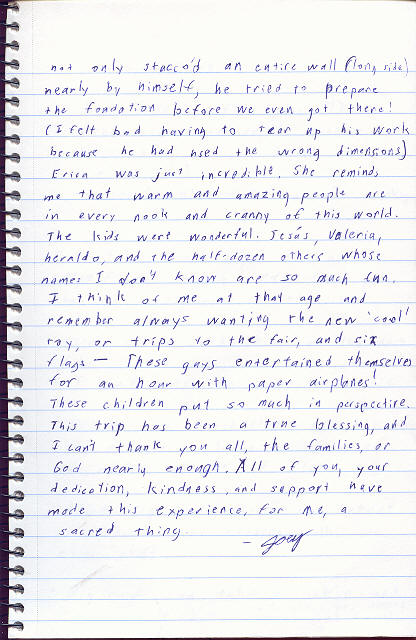 not only stacco'd an entire wall (long side)
nearly by himself, he tried to prepare
the fondation before we even got there!
(I felt bad having to tear up his work
because he had used the wrong dimensions)
Erica was just incredible. She reminds
me that warm and amazing people are
in every nook and cranny of this world.
The kids were wonderful. Jesús, Valeria,
heraldo, and the half-dozen others whose
names I don't know are so much fun.
I think of me at that age and
remember always wanting the new 'cool'
toy, or trips to the fair, and six
flags — These guys entertained themselves
for an hour with paper airplanes!
These children put so much in perspective.
This trip has been a true blessing, and
I can't thank you all, the families, or
God nearly enough. All of you, your
dedication, kindness, and support have
made this experience, for me, a
sacred thing.
- Joey